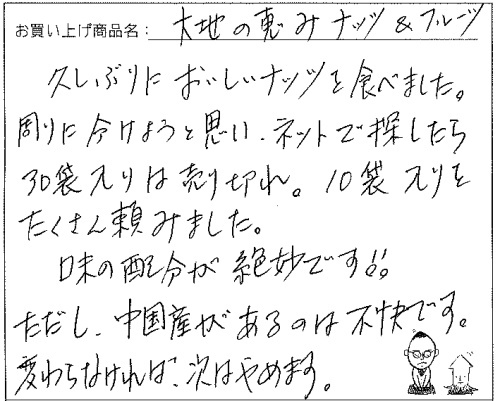 お買い上げ商品名: 大地の恵みナッツ&フルーツ
久しぶりにおいしいナッツを食べました。
周りに分けようと思い、ネットで探したら
30袋入りは売り切れ。10袋入りを
たくさん頼みました。
味の配分が絶妙です!!
ただし、中国産があるのは不快です。
変わらなければ、次はやめます。